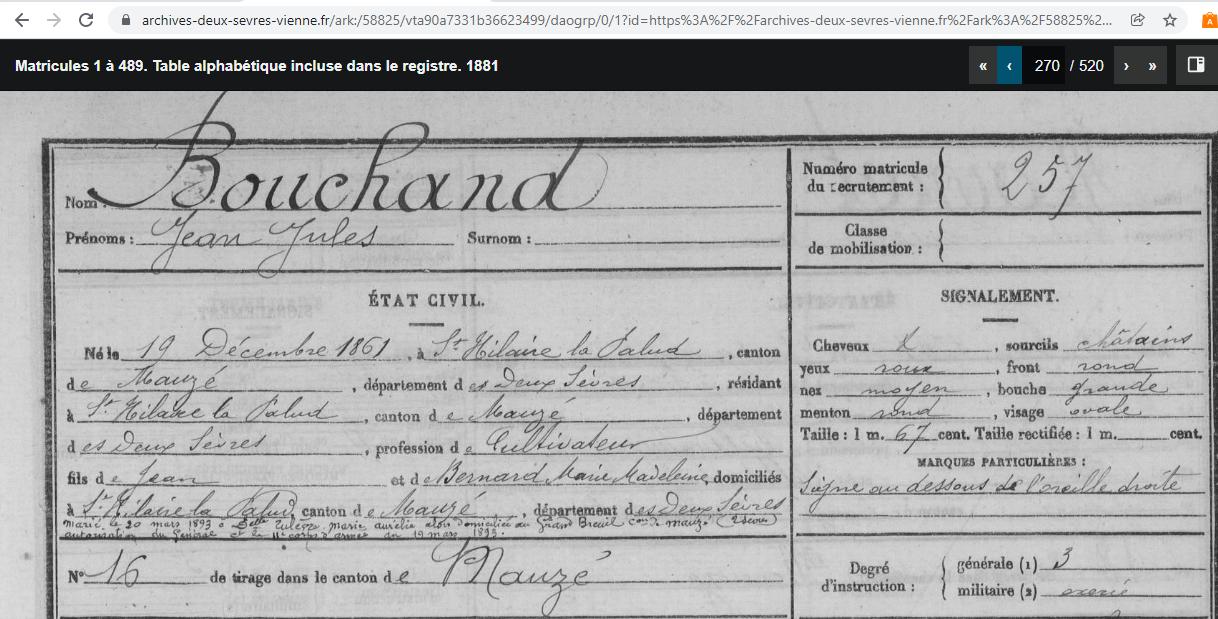 archives-deux-sevres-vienne.fr/ark:/58825/vta90a7331b36623499/daogrp/0/1?id=https%3A%2F%2Farchives-deux-sevres-vienne.fr%2Fark%3A%2F58825%2...
Matricules 1 à 489. Table alphabétique incluse dans le registre. 1881
« ‹ 270 / 520 › »
Nom : Bouchand
Prénoms : Jean Jules Surnom :
Numéro matricule du recrutement : 257
Classe de mobilisation :
ÉTAT CIVIL.
Né le 19 Décembre 1861, à St Hilaire la Palud, canton
de Mauzé, département des Deux Sèvres, résidant
à St Hilaire la Palud, canton de Mauzé, département
des Deux Sèvres, profession de Cultivateur
fils de Jean et de Bernard, Marie Madeleine, domiciliés
à St Hilaire la Palud, canton de Mauzé, département des Deux Sèvres
marié le 20 mars 1893 à Delle marie aurélie alors domiciliée au Grand Breuil con de mauzé (2 sèvres)
autorisation du Général et le 11e corps d'armée du 19 mars 1893.
N° 16 de tirage dans le canton de Mauzé
SIGNALEMENT.
Cheveux x, sourcils châtains
yeux roux, front rond
nez moyen, bouche grande
menton rond, visage ovale
Taille : 1 m. 67 cent. Taille rectifiée : 1 m. cent.
MARQUES PARTICULIÈRES :
Signe au dessous de l'oreille droite
Degré d'instruction :
générale (1) 3
militaire (2) exercé